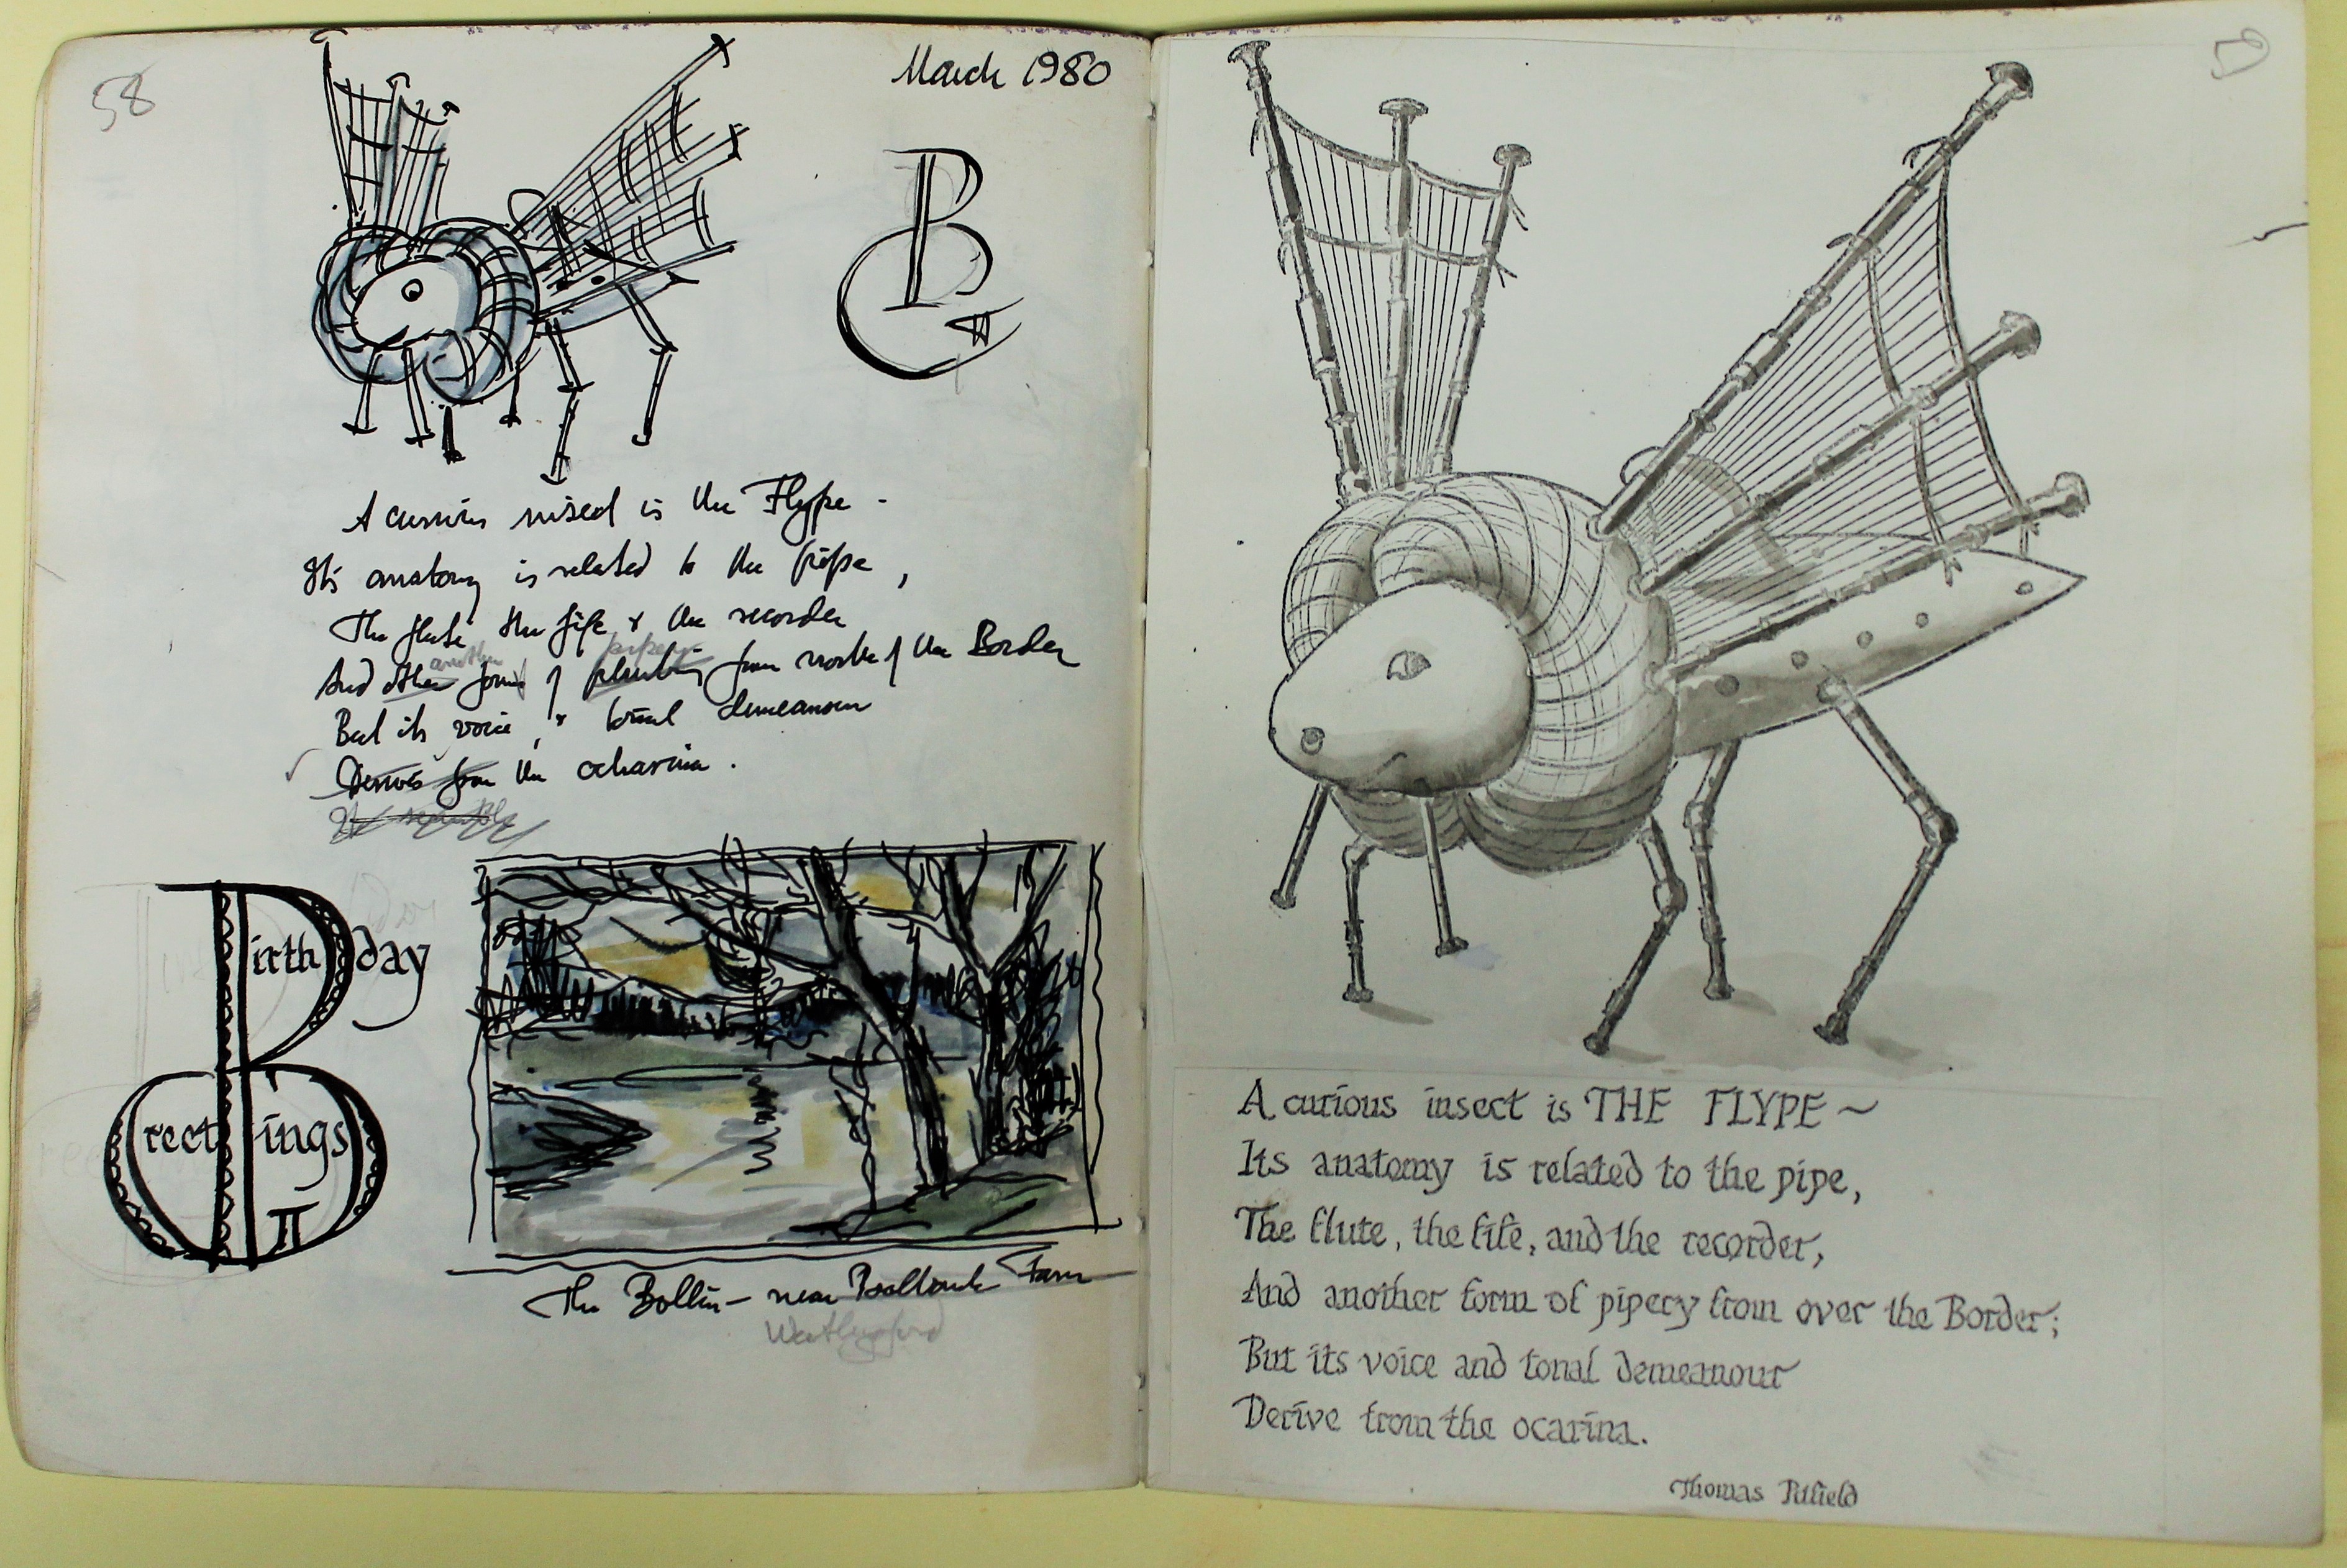 58
March 1980
B
A curious insect is the Flype -
Its anatomy is related to the pipe,
The flute the fife & the recorder
another pipery
And other forms of from north of the Border
But its voice, & tonal demeanour
Derives from the ocharina.
Birthday
Greetings
II
The Bollin - near Farm
A curious insect is THE FLYPE ~
Its anatomy is related to the pipe,
The flute, the fife, and the recorder,
And another form of pipery from over the Border;
But its voice and tonal demeanour
Derive from the ocarina.
Thomas Pitfield